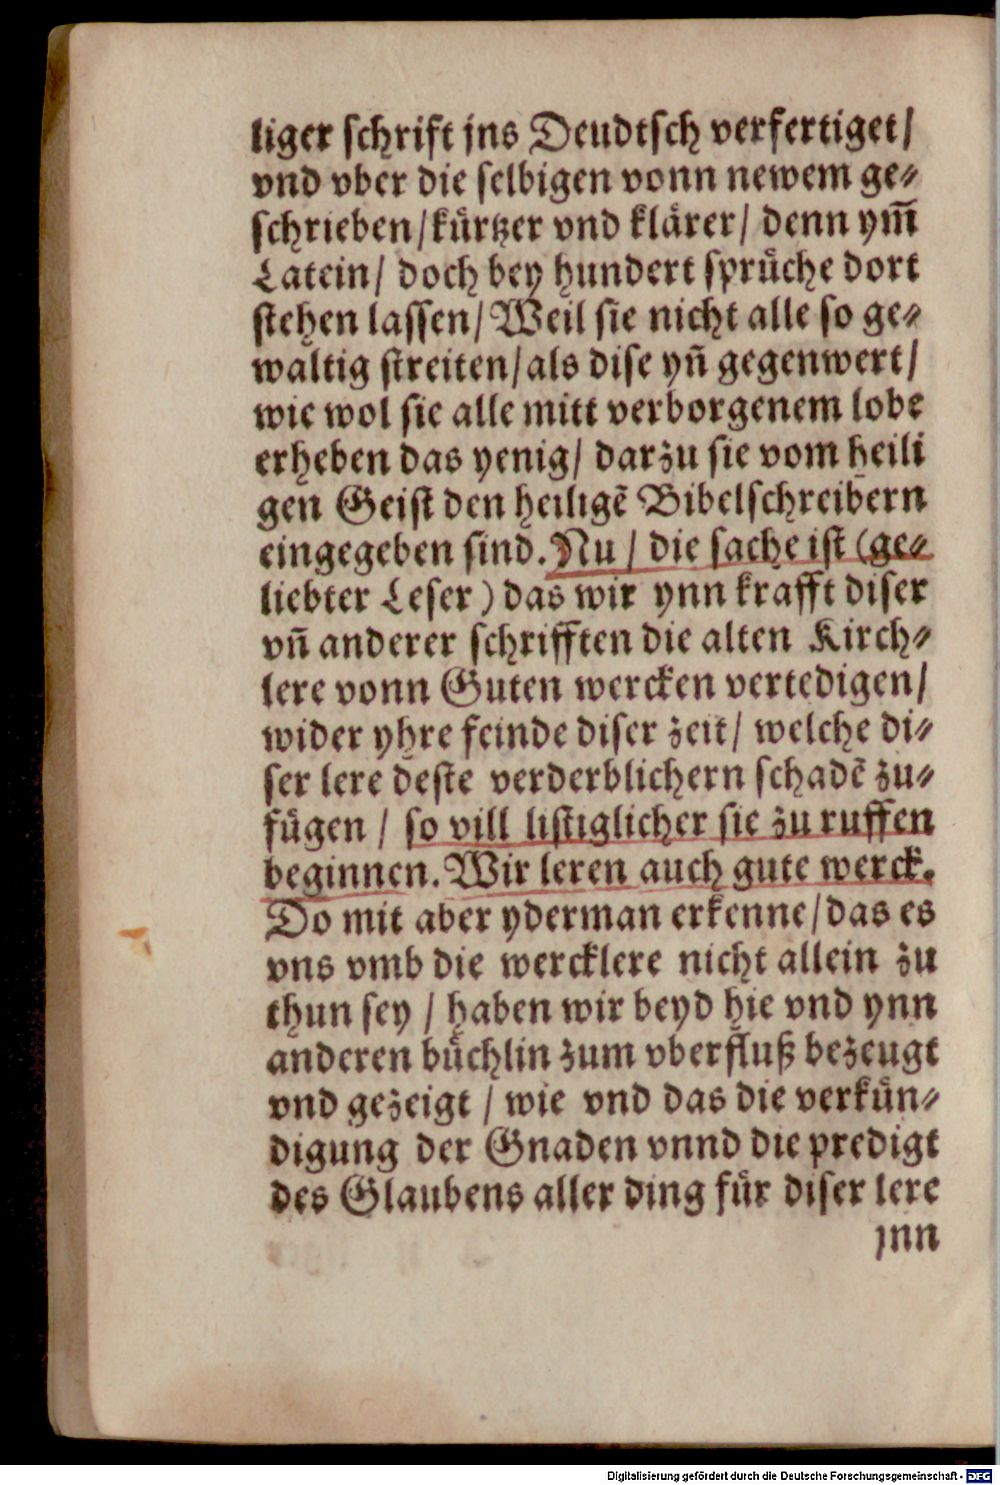 liger schrift jns Deudtsch verfertiget/
vnd vber die selbigen vonn newem ge⸗
schrieben/kürtzer vnd klärer/ denn ym̄
Latein/ doch bey hundert sprüche dort
stehen lassen/Weil sie nicht alle so ge⸗
waltig streiten/als dise yn̄ gegenwert/
wie wol sie alle mitt verborgenem lobe
erheben das yenig/ darzu sie vom heili
gen Geist den heiligē Bibelschreibern
eingegeben sind. Nu / die sache ist (ge⸗
liebter Leser) das wir ynn krafft diser
vn̄ anderer schrifften die alten Kirch⸗
lere vonn Guten wercken vertedigen/
wider yhre feinde diser zeit/ welche di⸗
ser lere deste verderblichern schadē zu⸗
fügen / so vill listiglicher sie zu ruffen
beginnen. Wir leren auch gute werck.
Do mit aber yderman erkenne/das es
vns vmb die wercklere nicht allein zu
thun sey / haben wir beyd hie vnd ynn
anderen büchlin zum vberfluß bezeugt
vnd gezeigt / wie vnd das die verkün⸗
digung der Gnaden vnnd die predigt
des Glaubens aller ding für diser lere
jnn
Digitalisierung gefördert durch die Deutsche Forschungsgemeinschaft - DFG